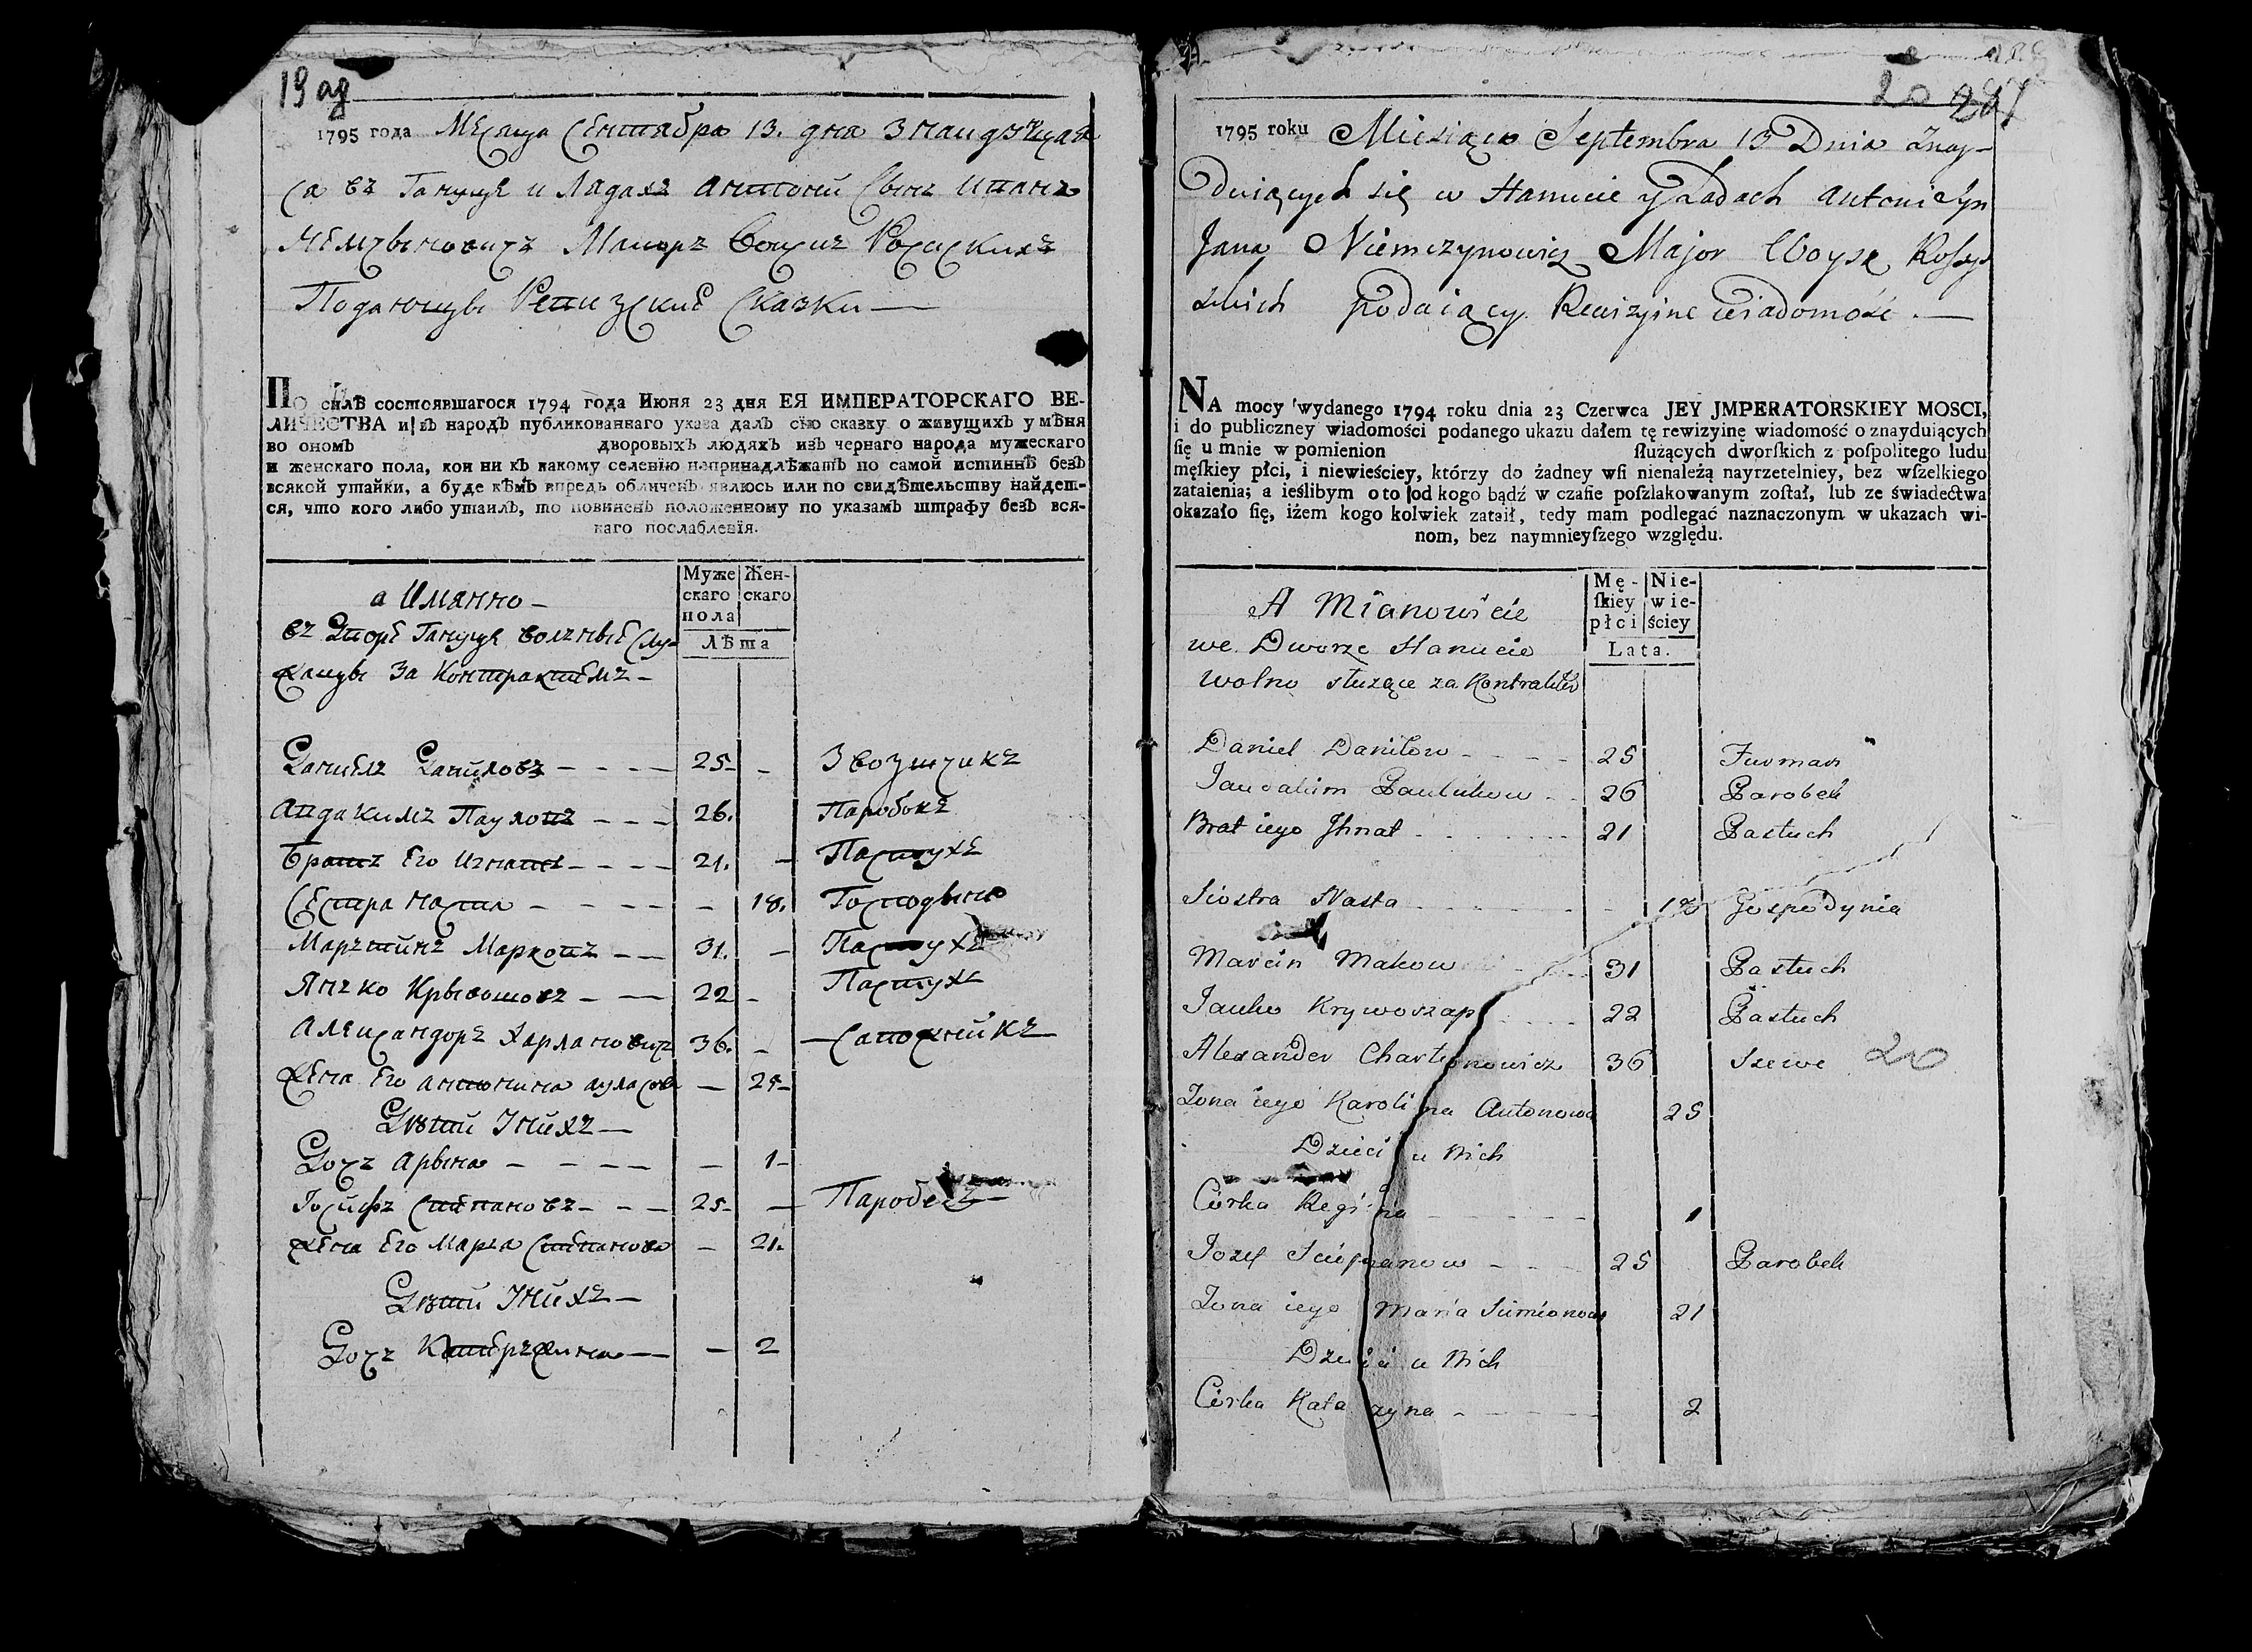 19 ад
1795 года Месяца Сентября 13. дня Знайдуюча
ся въ Гануце и Лядахъ Антоний Сынъ Иванъ
Немчыновичъ Маиоръ Войскъ Росискихъ
Подающы Ревизские Сказки —
ПО силѣ состоявшагося 1794 года Июня 23 дня ЕЯ ИМПЕРАТОРСКАГО ВЕ-
ЛИЧЕСТВА и въ народѣ публикованнаго указа далъ сїю сказку о живущихъ у мѣня
во ономъ дворовыхъ людяхъ изъ чернаго народа мужескаго
и женскаго пола, кои ни къ какому селенїю непринадлѣжатъ по самой истиннѣ безъ
всякой утайки, а буде кѣмъ впредь обличенъ явлюсь или по свидѣтельству найдет-
ся, что кого либо утаилъ, то повиненъ положенному по указамъ штрафу безъ вся-
каго послабленїя.
Муже Жен-
скаго скаго
пола
Лѣта
а Имянно —
въ Дворе Гануце волные Слу-
жащы За Контрактемъ —
Даниелъ Даниловъ — 25 — Звозщикъ
Авдакимъ Пауловъ — 26. Паробокъ
Братъ Его Игнатъ — 21. — Пастухъ
Сестра Наста — — 18. Господыню
Мартинъ Марковъ — 31. — Пастухъ
Янъко Крывошовъ — 22 — Пастухъ
Александоръ Харлановичъ 36. — Сапожникъ
Жена Его Антонина — 25
Дети У Нихъ —
Дочъ Арына — — 1
Иосифъ Степановъ — 25 — Паробекъ
Жена Его Марта Степанова — 21.
Дети У Нихъ —
Дочъ Катержина — — 2
20 287
1795 roku Miesiąca Septembra 13 Dnia Znay-
duiących się w Hanucie y Ladach Antoni Syn
Jana Niemczynowicz Major Woysk Rossys
skich podaiący Rewizyine wiadomość. —
NA mocy wydanego 1794 roku dnia 23 Czerwca JEY JMPERATORSKIEY MOSCI,
i do publiczney wiadomości podanego ukazu dałem tę rewizyinę wiadomość o znayduiących
ſię u mnie w pomienion ſłużących dworſkich z poſpolitego ludu
męſkiey płci, i niewieściey, którzy do żadney wſi nienależą nayrzetelniey, bez wſzelkiego
zataienia; a ieślibym o to od kogo bądź w czaſie poſzlakowanym zoſtał, lub ze świadectwa
okazało ſię, iżem kogo kolwiek zataił, tedy mam podlegać naznaczonym w ukazach wi-
nom, bez naymnieyſzego względu.
Mę- Nie-
ſkiey wie-
płci ściey
Lata.
A Mianowicie
we Dworze Hanucie
wolno służące za Kontraktem
Daniel Daniłow - - - - 25 Furman
Jaudakim Paulukow - - 26 Parobek
Brat iego Jhnat - - - - 21 Pastuch
Siostra Nasta - - - - - 18 Gospodynia
Marcin Makow - - - 31 Pastuch
Janko Krywoszap - - - 22 Pastuch
Alexander Chartonowicz 36 Szewc 20
Żona iego Karolina Antonowa 25
Dzieci u Nich
Córka Regina - - - - - 1
Jozef Sciepanow - - - 25 Parobek
Żona iego Maria Simionowa 21
Dzieci u Nich
Córka Katarzyna - - - - 2